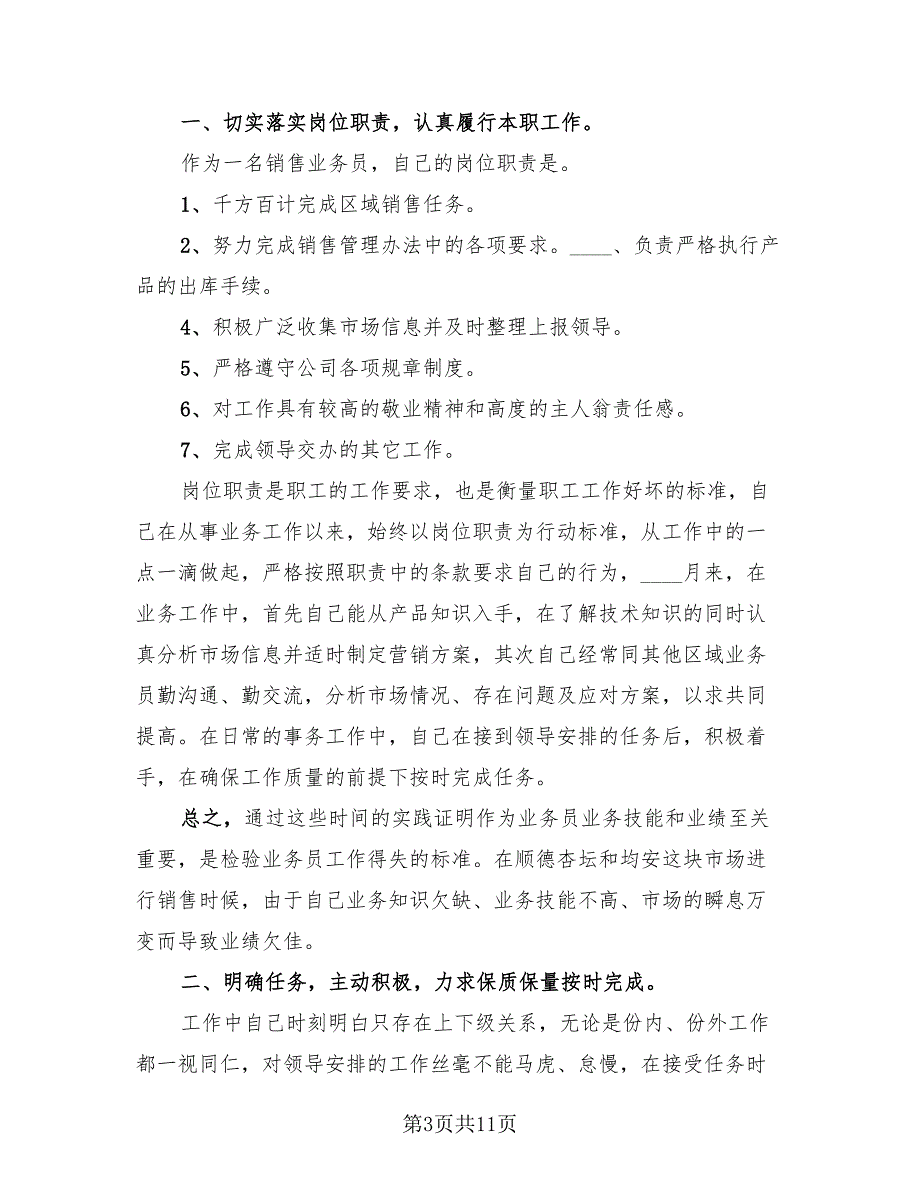 一、切实落实岗位职责，认真履行本职工作。
作为一名销售业务员，自己的岗位职责是。
1、千方百计完成区域销售任务。
2、努力完成销售管理办法中的各项要求。____、负责严格执行产
品的出库手续。
4、积极广泛收集市场信息并及时整理上报领导。
5、严格遵守公司各项规章制度。
6、对工作具有较高的敬业精神和高度的主人翁责任感。
7、完成领导交办的其它工作。
岗位职责是职工的工作要求，也是衡量职工工作好坏的标准，自
己在从事业务工作以来，始终以岗位职责为行动标准，从工作中的一
点一滴做起，严格按照职责中的条款要求自己的行为，____月来，在
业务工作中，首先自己能从产品知识入手，在了解技术知识的同时认
真分析市场信息并适时制定营销方案，其次自己经常同其他区域业务
员勤沟通、勤交流，分析市场情况、存在问题及应对方案，以求共同
提高。在日常的事务工作中，自己在接到领导安排的任务后，积极着
手，在确保工作质量的前提下按时完成任务。
总之，通过这些时间的实践证明作为业务员业务技能和业绩至关
重要，是检验业务员工作得失的标准。在顺德杏坛和均安这块市场进
行销售时候，由于自己业务知识欠缺、业务技能不高、市场的瞬息万
变而导致业绩欠佳。
二、明确任务，主动积极，力求保质保量按时完成。
工作中自己时刻明白只存在上下级关系，无论是份内、份外工作
都一视同仁，对领导安排的工作丝毫不能马虎、怠慢，在接受任务时
第3页共11页